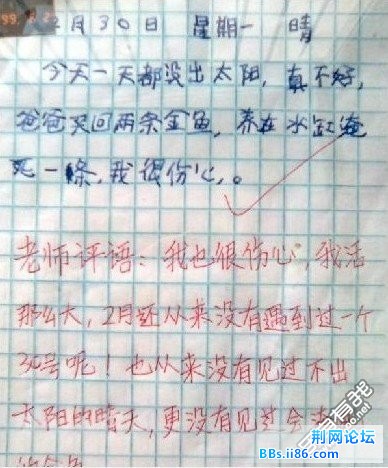 2月30日 星期一 晴
今天一天都没出太阳，真不好，
爸爸买回两条金鱼，养在水缸淹
死一條，我很伤心。
老师评语：我也很伤心，我活
那么大，2月还从来没有遇到过一个
30号呢！也从来没有见过不出
太阳的晴天，更没有见过会淹
的金鱼
荆网论坛
BBs.ii86.com